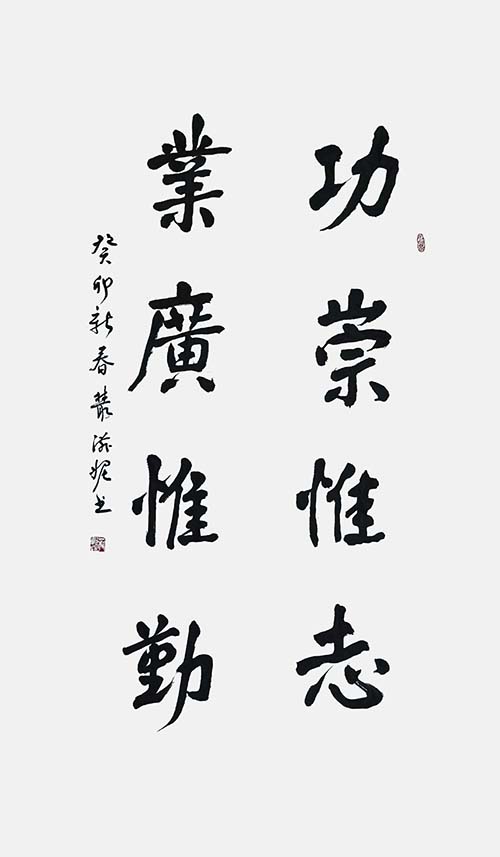 功崇惟志
業廣惟勤
癸卯新春叢妮书